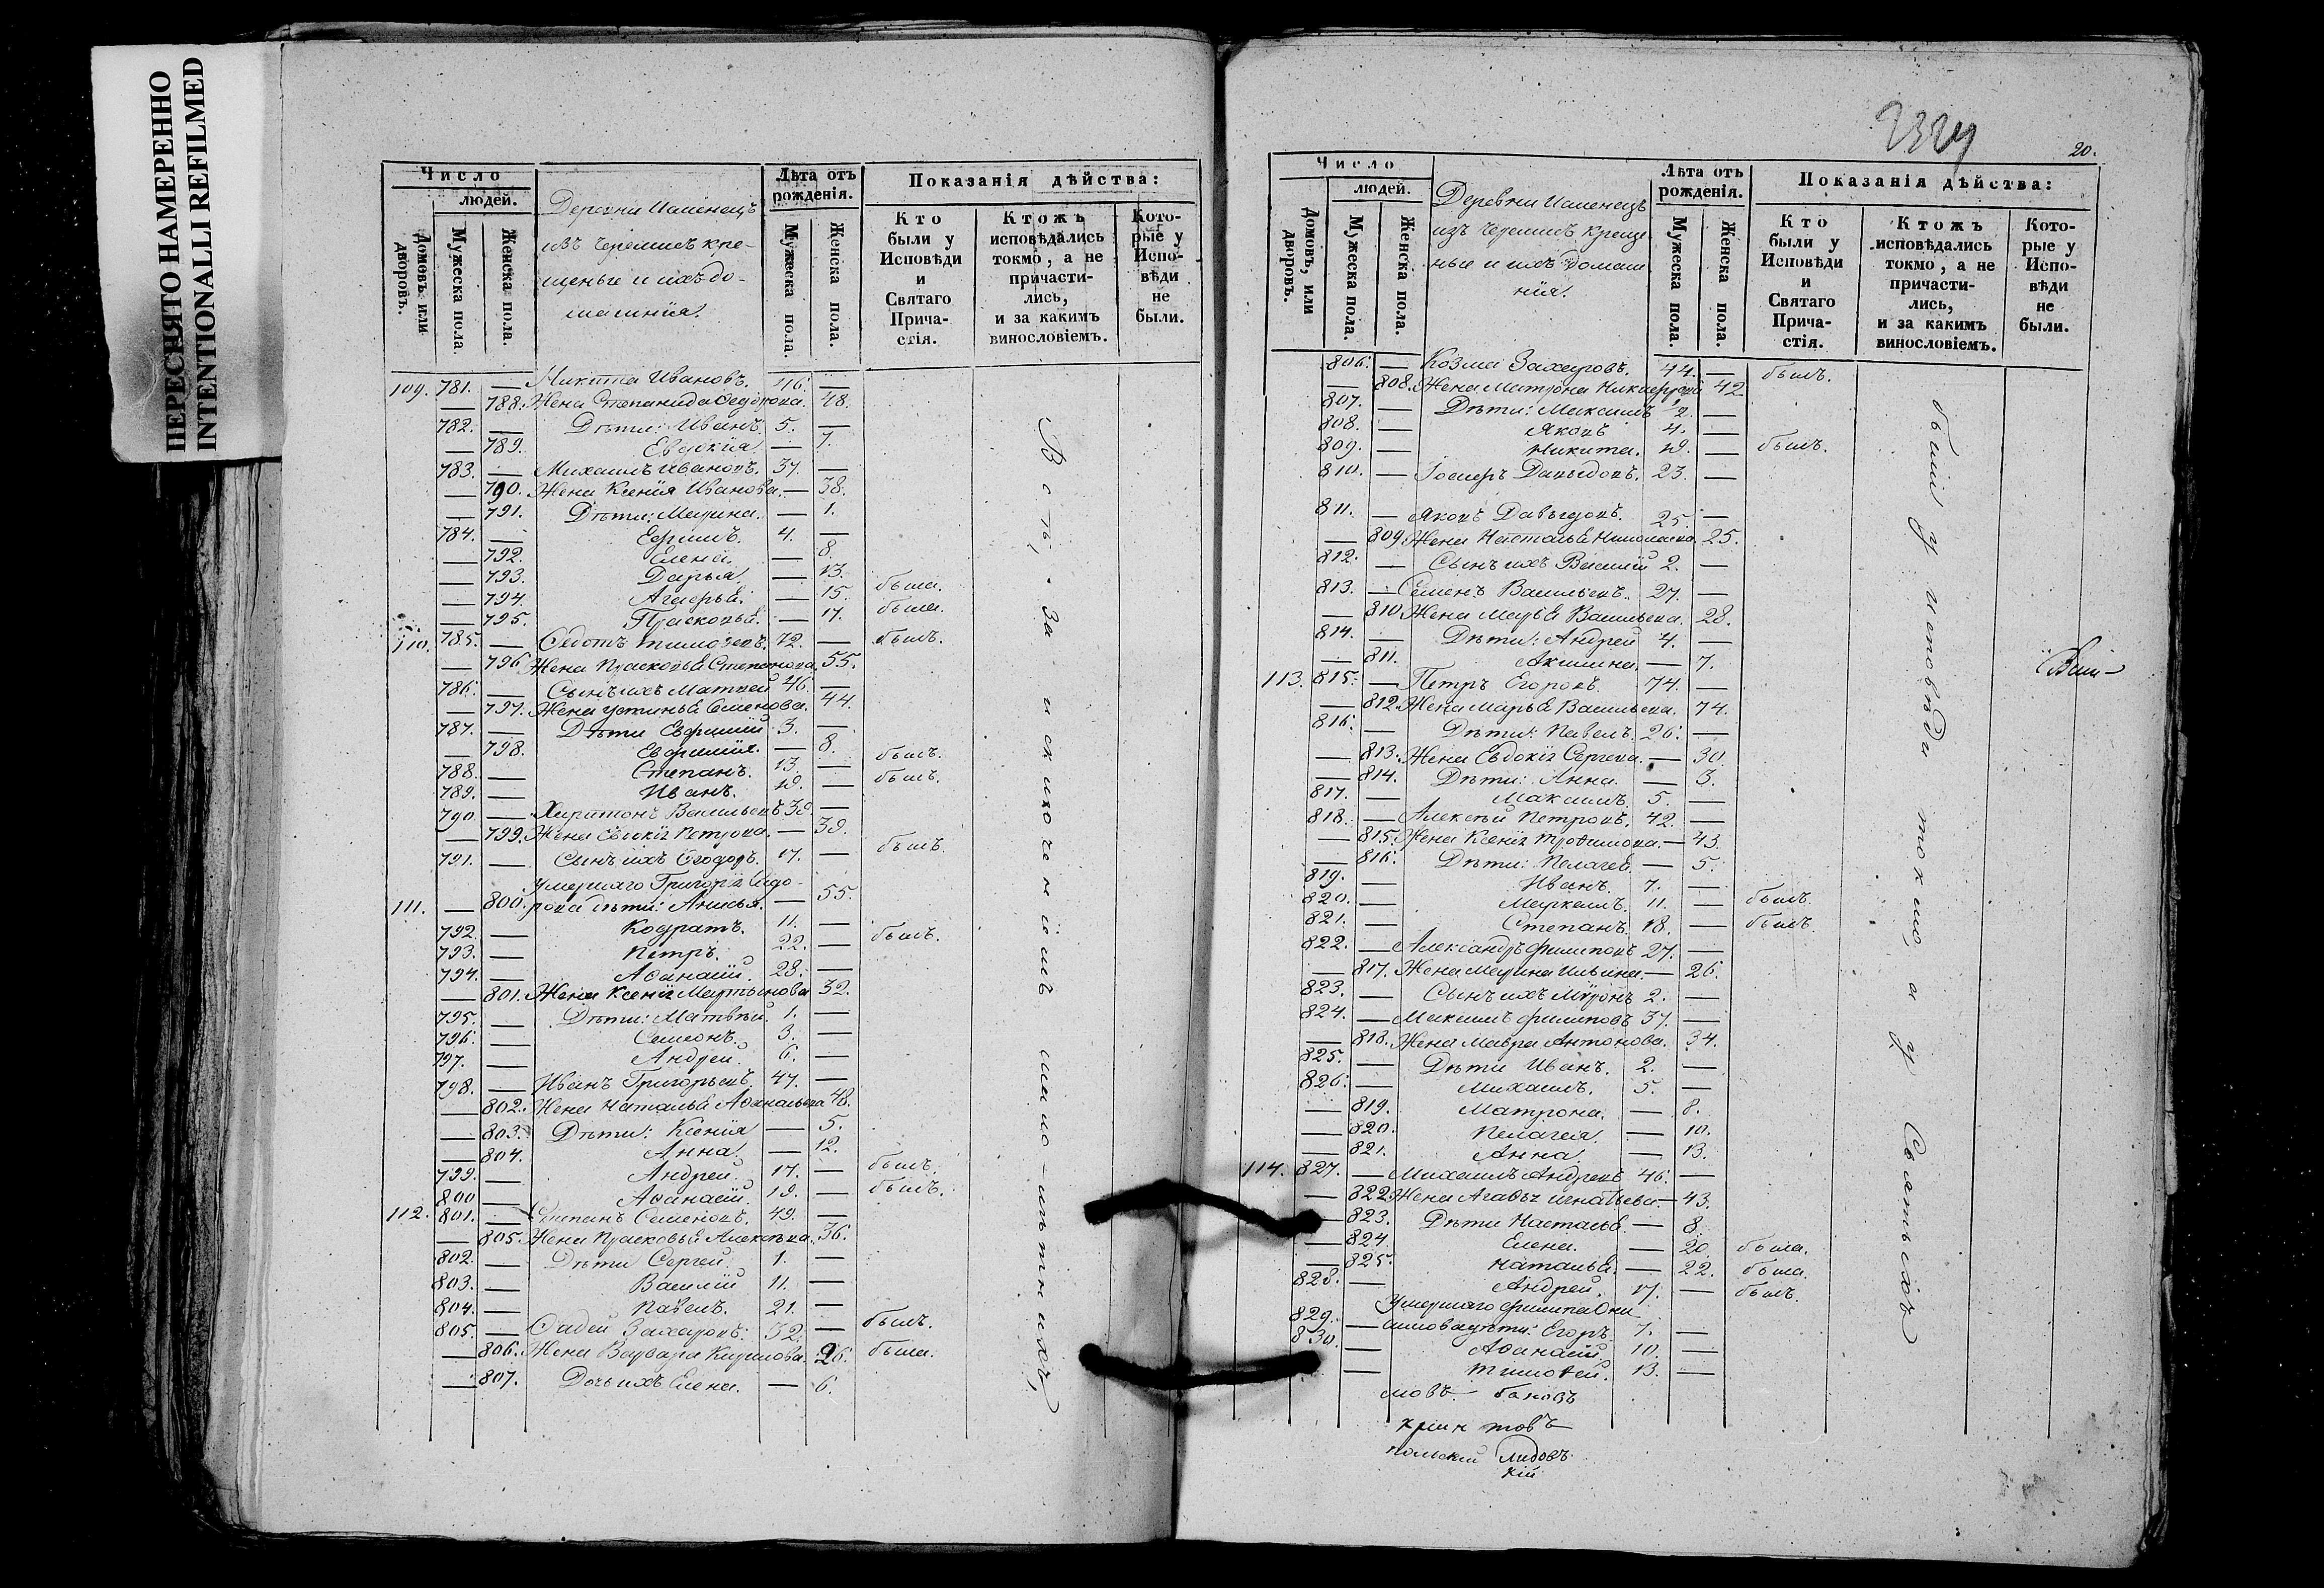 ПЕРЕСНЯТО НАМЕРЕННО
INTENTIONALLI REFILMED
Число
людей.
Домовъ или дворовъ.
Мужеска пола.
Женска пола.
Деревни
изъ черемисъ кре-
щеные и ихъ до-
машнія.
Лѣта отъ рожденія.
Мужеска пола.
Женска пола.
Показанія дѣйства:
Кто были у Исповѣди и Святаго Прича-стія.
Ктожъ исповѣдались токмо, а не причасти-лись, и за какимъ винословіемъ.
Кото-рые у Испо-вѣди не были.
109. 781. — Никита Ивановъ. 46. —
— 788. Жена Степанида Ѳедорова. 48.
782. — Дѣти: Иванъ. 5. —
— 789. Евдокія — 7.
783. — Михаилъ Ивановъ. 37. —
— 790. Жена Ксенія Иванова. — 38.
— 791. Дѣти: Марина. — 1.
784. — Ефимъ. 4. —
— 792. Елена. — 8.
— 793. Дарья. — 13.
— 794. — 15. была.
— 795. Прасковья. — 17. была.
110. 785. — 72. — былъ.
— 796 Жена Прасковья Степанова. 55.
786. — Сынъ ихъ Матвей 46. —
— 797. Жена Устинья Семенова. 44.
787. — Дѣти Евфимій 3. —
— 798. Евфимія. — 8.
788. — Степанъ. 13. — былъ.
789. — Иванъ. 19. — былъ.
790. — Харитонъ Васильевъ 38. —
— 799. Жена Петрова. — 39.
791. — Сынъ ихъ Ѳеодоръ. 17. — былъ.
Умершаго Григорія Сидо-
111. — 800. рова дѣти: Анисья. — 55.
792. — Кодратъ. 11. —
793. — Петръ. 22. — былъ.
794. — Аѳанасій. 28. —
— 801. Жена Ксенія Мартынова 32.
795. — Дѣти: Матвѣй. 1. —
796. — Симеонъ. 3. —
797. — Андрей. 6. —
798. — Иванъ Григорьевъ. 47. —
— 802. Жена Наталья Аѳанасьева 48.
— 803. Дѣти: Ксенія — 5.
— 804. Анна. — 12.
799. — Андрей. 17. — былъ.
800 — Аѳанасій. 19. — былъ.
112. 801. — Степанъ Семеновъ. 49. —
— 805. Жена Прасковья Алексѣева. 36.
802. — Дѣти Сергей. 1. —
803. — Василій 11. —
804. — Павелъ. 21. —
805. — Ѳадей Захаровъ. 32. — былъ.
— 806. Жена Варвара Кирилова. 26. была.
— 807. Дочь ихъ Елена. — 6.
Всѣ, за исключеніемъ мало-лѣтнихъ,
20.
Число
людей.
Домовъ, или дворовъ.
Мужеска пола.
Женска пола.
Деревни
изъ черемисъ креще
ные и ихъ домаш
нія.
Лѣта отъ рожденія.
Мужеска пола.
Женска пола.
Показанія дѣйства:
Кто были у Исповѣди и Святаго Прича-стія.
Ктожъ исповѣдались токмо, а не причасти-лись, и за какимъ винословіемъ.
Кото-рые у Испо-вѣди не были.
806. — Козма Захаровъ. 44. — былъ.
— 808. Жена Матрона 42
807. — Дѣти: Максимъ 2. —
808. — Яковъ 4. —
809. — Никита. 19. — былъ.
810. — Давыдовъ. 23. —
811. — Яковъ Давыдовъ. 25. —
— 809. Жена Настасья Николаева. 25.
812. — Сынъ ихъ Василій 2. —
813. — Семенъ Васильевъ. 27. —
— 810 Жена Марья Васильева. 28.
814. — Дѣти: Андрей 4. —
— 811. Акилина — 7.
113. 815. — Петръ Егоровъ. 74. —
— 812. Жена Марья Васильева. 74.
816. — Дѣти: Павелъ. 26. —
— 813. Жена Евдокія Сергеева. — 30.
— 814. Дѣти: Анна. — 3.
817. — Максимъ. 5. —
818. — Алексѣй Петровъ. 42. —
— 815. Жена Ксенія Трофимова. — 43.
— 816. Дѣти: Пелагея. — 5.
819. — Иванъ. 7. —
820. — Маркелъ. 11. — былъ.
821. — Степанъ. 18. — былъ.
822. — Александръ Филиповъ 27. —
— 817. Жена Марина Ильина. — 26.
823. — Сынъ ихъ Мѵронъ 2. —
824. — Максимъ Филиповъ 37. —
— 818. Жена Мавра Антонова. 34.
825. — Дѣти Иванъ. 2. —
826. — Михаилъ. 5. —
— 819. Матрона. — 8.
— 820. Пелагея. — 10.
— 821. Анна. — 13.
114. 827. — Михаилъ Андреевъ 46. —
— 822 Жена Агаѳья Игнатьева — 43.
— 823. Дѣти Настасья — 8
— 824. Елена. — 20. была.
— 825. Наталья. — 22. была.
828. — Андрей. 17. — былъ.
Умершаго Филипа Они
829. — симова дѣти: Егоръ. 7. —
830. — Аѳанасій 10. —
Тимоѳей. 13. —
были у исповѣди токмо, а у Святыхъ